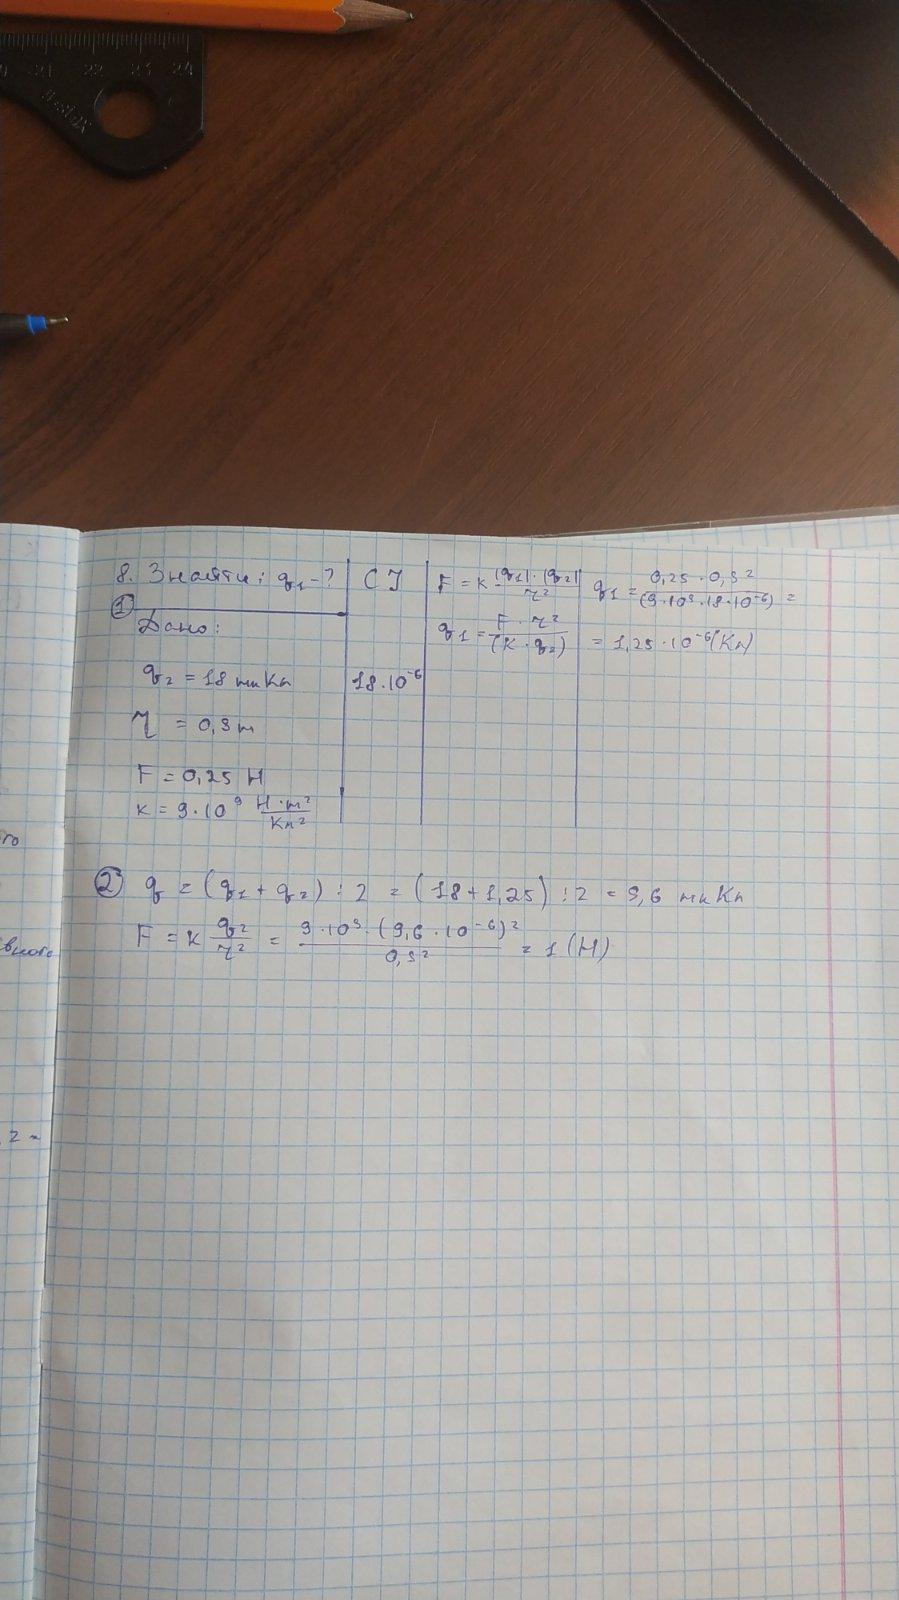 21 22 23 24
8. Знайти: q₁-?
СІ
①
Дано:
q₂ = 18 мкКл
18·10⁻⁶
r = 0,9 м
F = 0,25 Н
k = 9·10⁹ Н·м²/Кл²
F = k |q₁|·|q₂|/r²
q₁ = F·r²/(k·q₂)
q₁ = 0,25·0,9²/(9·10⁹·18·10⁻⁶) =
= 1,25·10⁻⁶(Кл)
② q = (q₁ + q₂) : 2 = (18 + 1,25) : 2 = 9,6 мкКл
F = k q²/r² = 9·10⁹·(9,6·10⁻⁶)²/0,9² = 1 (Н)
го
вного